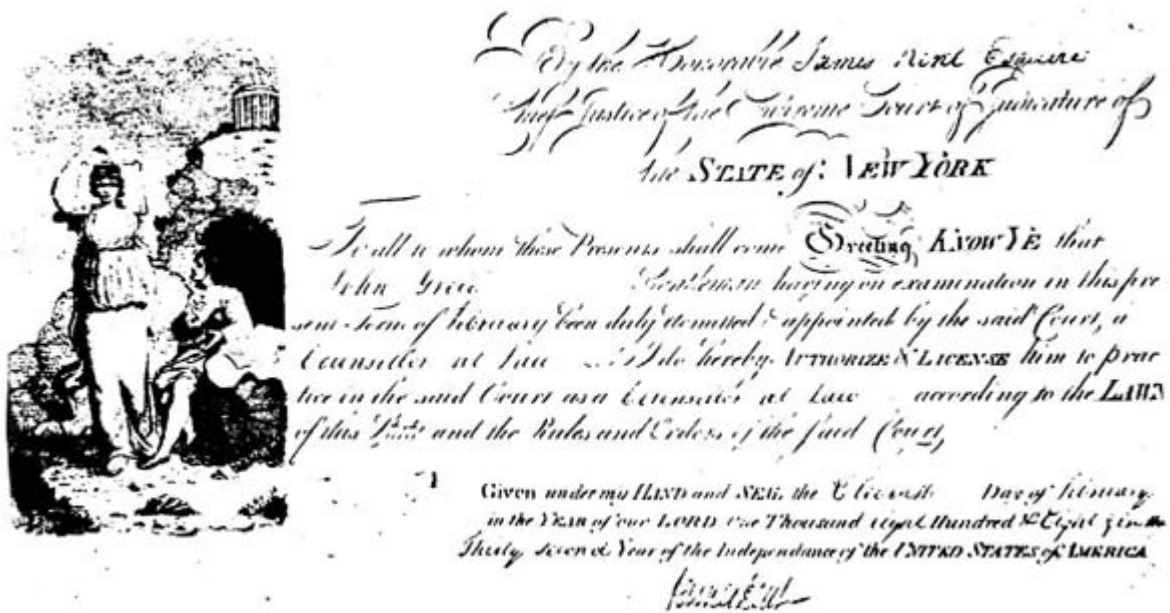 By the Honorable James Kent Esquire
Chief Justice of the Supreme Court of Judicature of
the STATE of NEW YORK
To all to whom these Presents shall come Greeting KNOW YE that
John Gentleman having on examination in this pre
sent Term of February been duly admitted & appointed by the said Court, a
Counsellor at Law I do hereby AUTHORIZE & LICENSE him to prac
tice in the said Court as a Counsellor at Law according to the LAWS
of this State and the Rules and Orders of the said Court,
Given under my HAND and SEAL the Day of February
in the YEAR of our LORD One Thousand eight Hundred & Eight & in the
Thirty second Year of the Independance of the UNITED STATES of AMERICA